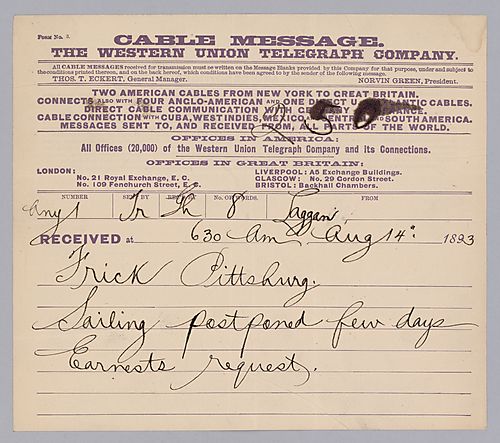 FORM No. 2.
CABLE MESSAGE.
THE WESTERN UNION TELEGRAPH COMPANY.
All CABLE MESSAGES received for transmission must be written on the Message Blanks provided by this Company for that purpose, under and subject to
the conditions printed thereon, and on the back hereof, which conditions have been agreed to by the sender of the following message.
THOS. T. ECKERT, General Manager. NORVIN GREEN, President.
TWO AMERICAN CABLES FROM NEW YORK TO GREAT BRITAIN.
CONNECTS ALSO WITH FOUR ANGLO-AMERICAN AND ONE DIRECT U ANTIC CABLES.
DIRECT CABLE COMMUNICATION WITH GE BY ANCE.
CABLE CONNECTION WITH CUBA, WEST INDIES, MEXICO CENTRAL AND SOUTH AMERICA.
MESSAGES SENT TO, AND RECEIVED FROM, ALL PARTS OF THE WORLD.
OFFICES IN AMERICA:
All Offices (20,000) of the Western Union Telegraph Company and its Connections.
OFFICES IN GREAT BRITAIN:
LONDON: LIVERPOOL: A5 Exchange Buildings.
No. 21 Royal Exchange, E. C. GLASGOW: No. 29 Gordon Street.
No. 109 Fenchurch Street, E. C. BRISTOL: Backhall Chambers.
NUMBER SENT BY REC'D BY No. OF WORDS. FROM
any 1 Jr Th 8 Laggan
RECEIVED at 630 am Aug 14" 1893
Frick Pittsburg.
Sailing postponed few days
Earnests request.